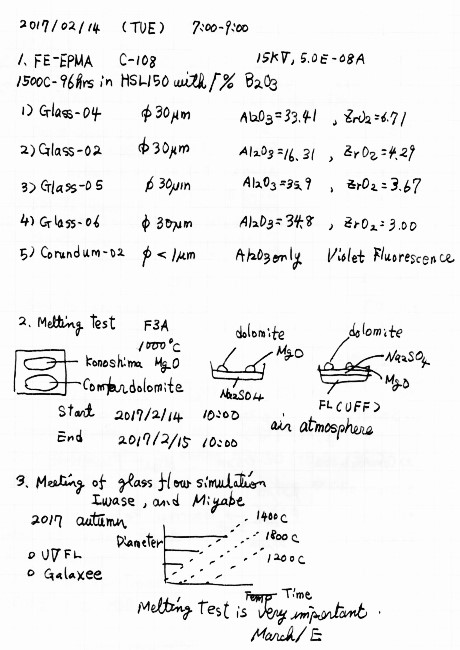 2017/02/14 (TUE) 7:00-9:00
1. FE-EPMA C-108 15KV, 5.0E-08A
1500C-96hrs in HSL150 with 1% B2O3
1) Glass-04 φ30μm Al2O3=33.41, ZrO2=6.71
2) Glass-02 φ30μm Al2O3=16.31, ZrO2=4.29
3) Glass-05 φ30μm Al2O3=35.9, ZrO2=3.67
4) Glass-06 φ30μm Al2O3=34.8, ZrO2=3.00
5) Corundum-02 φ<1μm Al2O3 only Violet Fluorescence
2. Melting Test F3A
1000°C
Konoshima MgO
dolomite
dolomite
MgO
Na2SO4
dolomite
Na2SO4
MgO
FL(UFF)
Start 2017/2/14 10:00
End 2017/2/15 10:00
air atmosphere
3. Meeting of glass flow simulation
Iwase, and Miyabe
2017 autumn
o UVFL
o Galaxee
Diameter
1400C
1800C
1200C
Temp Time
Melting Test is very important.
March/E